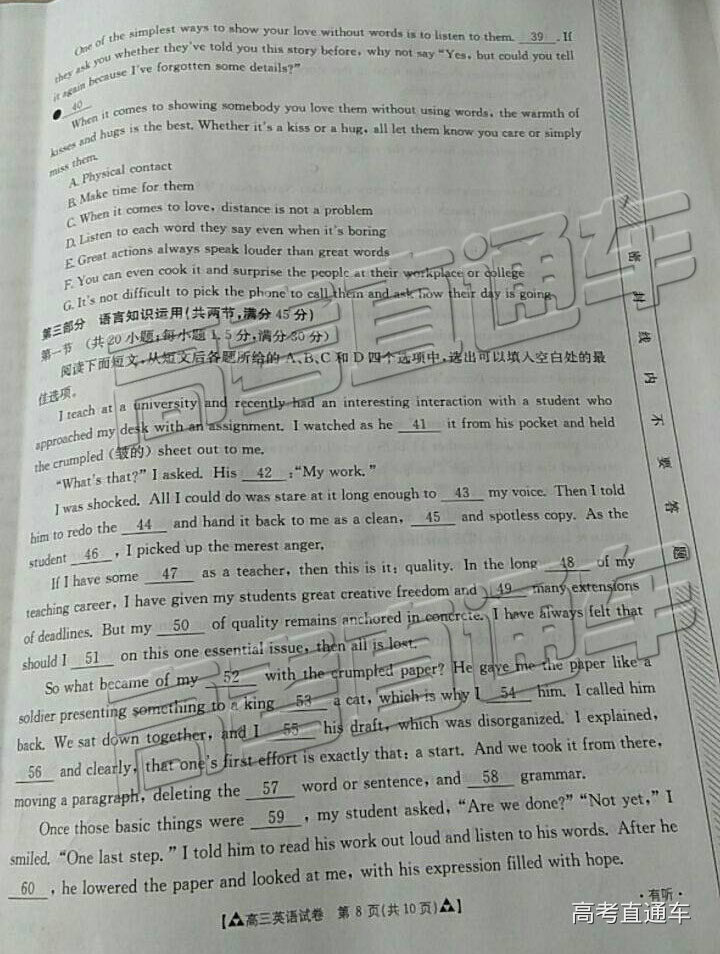 One of the simplest ways to show your love without words is to listen to them. 39 . If
they ask you whether they've told you this story before, why not say "Yes, but could you tell
it again because I've forgotten some details?"
● 40
When it comes to showing somebody you love them without using words, the warmth of
kisses and hugs is the best. Whether it's a kiss or a hug, all let them know you care or simply
miss them.
A. Physical contact
B. Make time for them
C. When it comes to love, distance is not a problem
D. Listen to each word they say even when it's boring
E. Great actions always speak louder than great words
F. You can even cook it and surprise the people at their workplace or college
G. It's not difficult to pick the phone to call them and ask how their day is going
第三部分 语言知识运用(共两节,满分45分)
第一节 (共20小题;每小题1.5分,满分30分)
阅读下面短文,从短文后各题所给的A、B、C和D四个选项中,选出可以填入空白处的最
佳选项。
I teach at a university and recently had an interesting interaction with a student who
approached my desk with an assignment. I watched as he 41 it from his pocket and held
the crumpled (皱的) sheet out to me.
"What's that?" I asked. His 42 :"My work."
I was shocked. All I could do was stare at it long enough to 43 my voice. Then I told
him to redo the 44 and hand it back to me as a clean, 45 and spotless copy. As the
student 46 , I picked up the merest anger.
If I have some 47 as a teacher, then this is it: quality. In the long 48 of my
teaching career, I have given my students great creative freedom and 49 many extensions
of deadlines. But my 50 of quality remains anchored in concrete. I have always felt that
should I 51 on this one essential issue, then all is lost.
So what became of my 52 with the crumpled paper? He gave me the paper like a
soldier presenting something to a king 53 a cat, which is why I 54 him. I called him
back. We sat down together, and I 55 his draft, which was disorganized. I explained,
56 and clearly, that one's first effort is exactly that: a start. And we took it from there,
moving a paragraph, deleting the 57 word or sentence, and 58 grammar.
Once those basic things were 59 , my student asked, "Are we done?" "Not yet," I
smiled. "One last step." I told him to read his work out loud and listen to his words. After he
60 , he lowered the paper and looked at me, with his expression filled with hope.
【高三英语试卷 第8页(共10页)】
·有听·
密 封 线 内 不 要 答 题
高考直通车
高考直通车
高考直通车